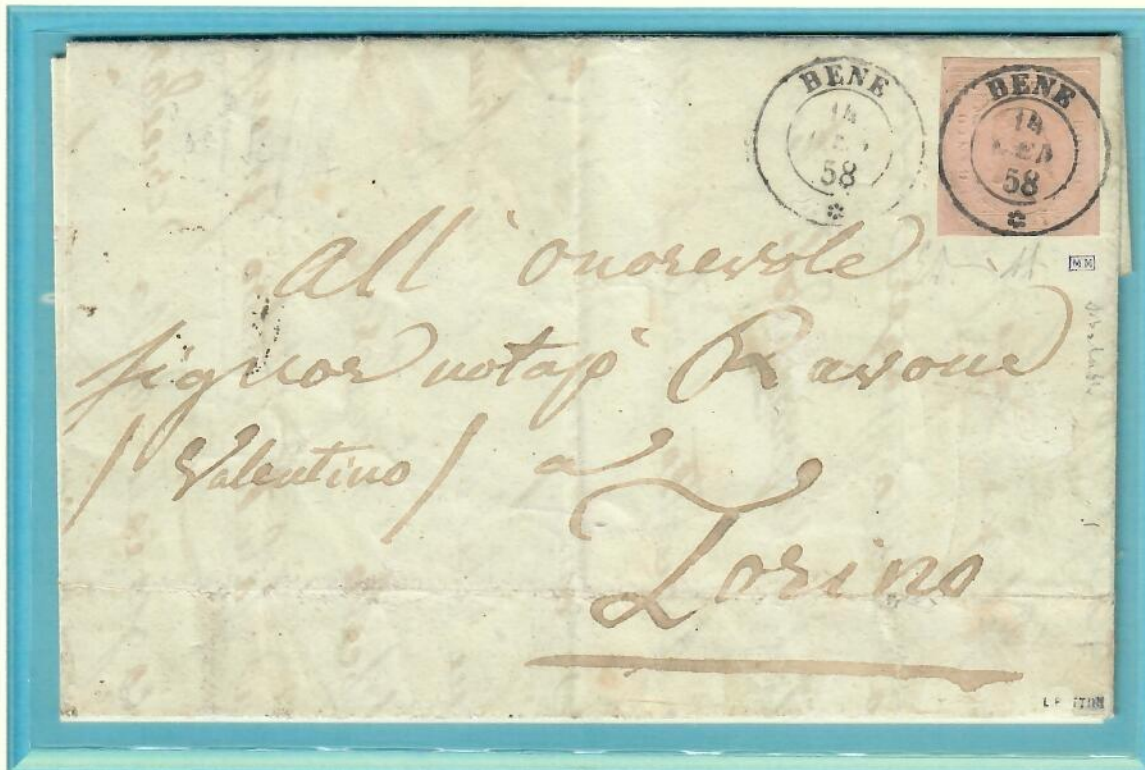 BENE
14
58
BENE
14
58
All' onorevole
signor notajo Ravone
/ Valentino / a
Torino